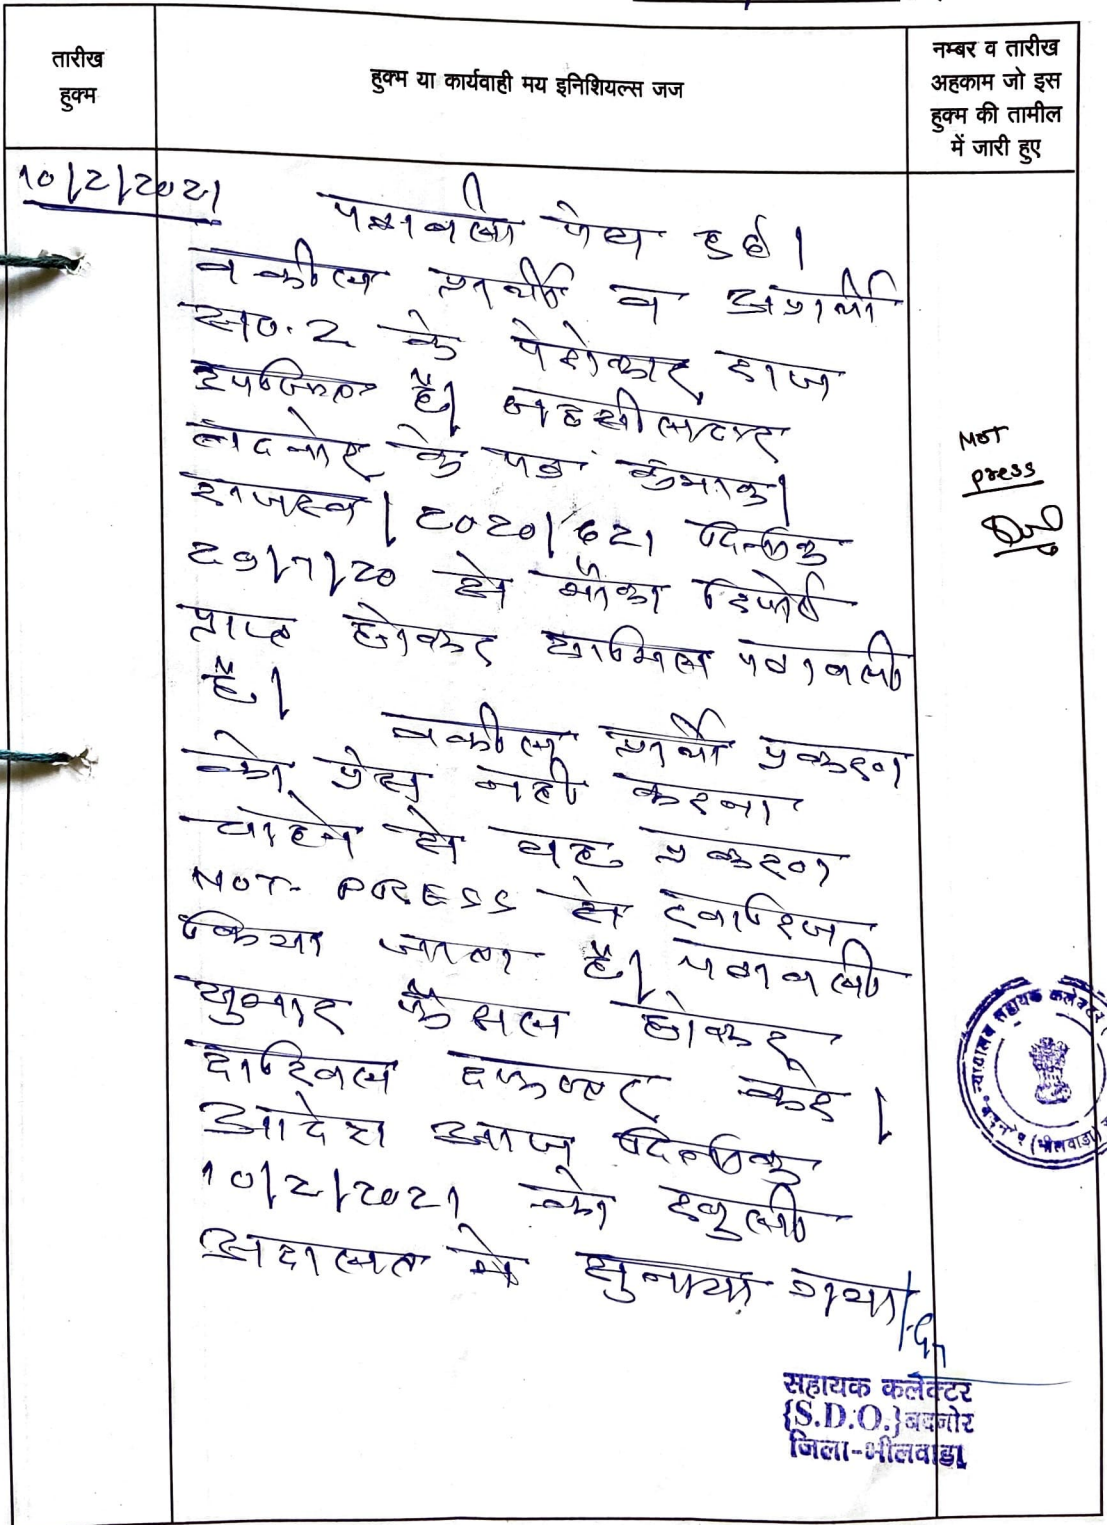 तारीख
हुक्म
हुक्म या कार्यवाही मय इनिशियल्स जज
नम्बर व तारीख
अहकाम जो इस
हुक्म की तामील
में जारी हुए
10/2/2021
पत्रावली पेश हुई।
वकील प्रार्थी व अप्रार्थी
स०.2 के पेरोकार हाज
उपस्थित है। तहसीलदार
बदनोर के पत्र क्रमांक/
राजस्व/2020/621 दिनांक
29/7/20 से मौका रिपोर्ट
प्राप्त होकर शामिल पत्रावली
है।
वकील प्रार्थी प्रकरण
को प्रेस नही करना
चाहने से यह प्रकरण
NOT- PRESS से खारिज
किया जाता है। पत्रावली
शुमार फैसल होकर
दाखिल दफ्तर करे।
आदेश आज दिनांक
10/2/2021 को खुली
अदालत मे सुनाया गया।
NOT
press
न्यायालय सहायक कलेक्टर
(भीलवाडा)
सहायक कलेक्टर
{S.D.O.} बदनोर
जिला-भीलवाडा